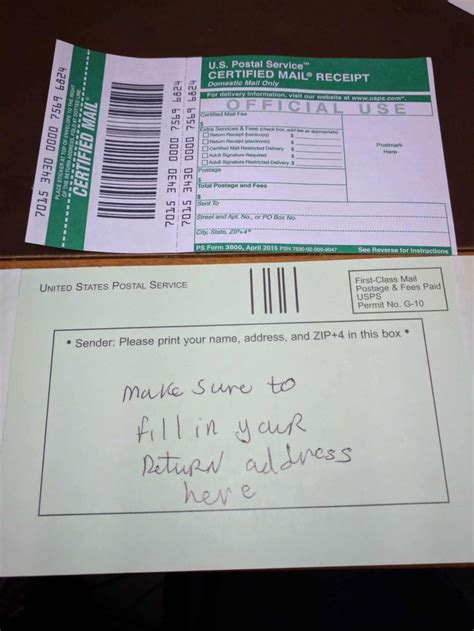 U.S. Postal Service™
CERTIFIED MAIL® RECEIPT
Domestic Mail Only
For delivery information, visit our website at www.usps.com®.
OFFICIAL USE
Certified Mail Fee
$
Extra Services & Fees (check box, add fee as appropriate)
Return Receipt (hardcopy) $
Return Receipt (electronic) $
Certified Mail Restricted Delivery $
Adult Signature Required $
Adult Signature Restricted Delivery $
Postmark
Here
Postage
$
Total Postage and Fees
$
Sent To
Street and Apt. No., or PO Box No.
City, State, ZIP+4®
PS Form 3800, April 2015 PSN 7530-02-000-9047 See Reverse for Instructions
7015 3430 0000 7569 6824
7015 3430 0000 7569 6824
CERTIFIED MAIL®
PLACE STICKER AT TOP OF ENVELOPE TO THE RIGHT
OF THE RETURN ADDRESS, FOLD AT DOTTED LINE
7015 3430 0000 7569 6824
UNITED STATES POSTAL SERVICE
First-Class Mail
Postage & Fees Paid
USPS
Permit No. G-10
• Sender: Please print your name, address, and ZIP+4 in this box •
make sure to
fill in your
Return address
here